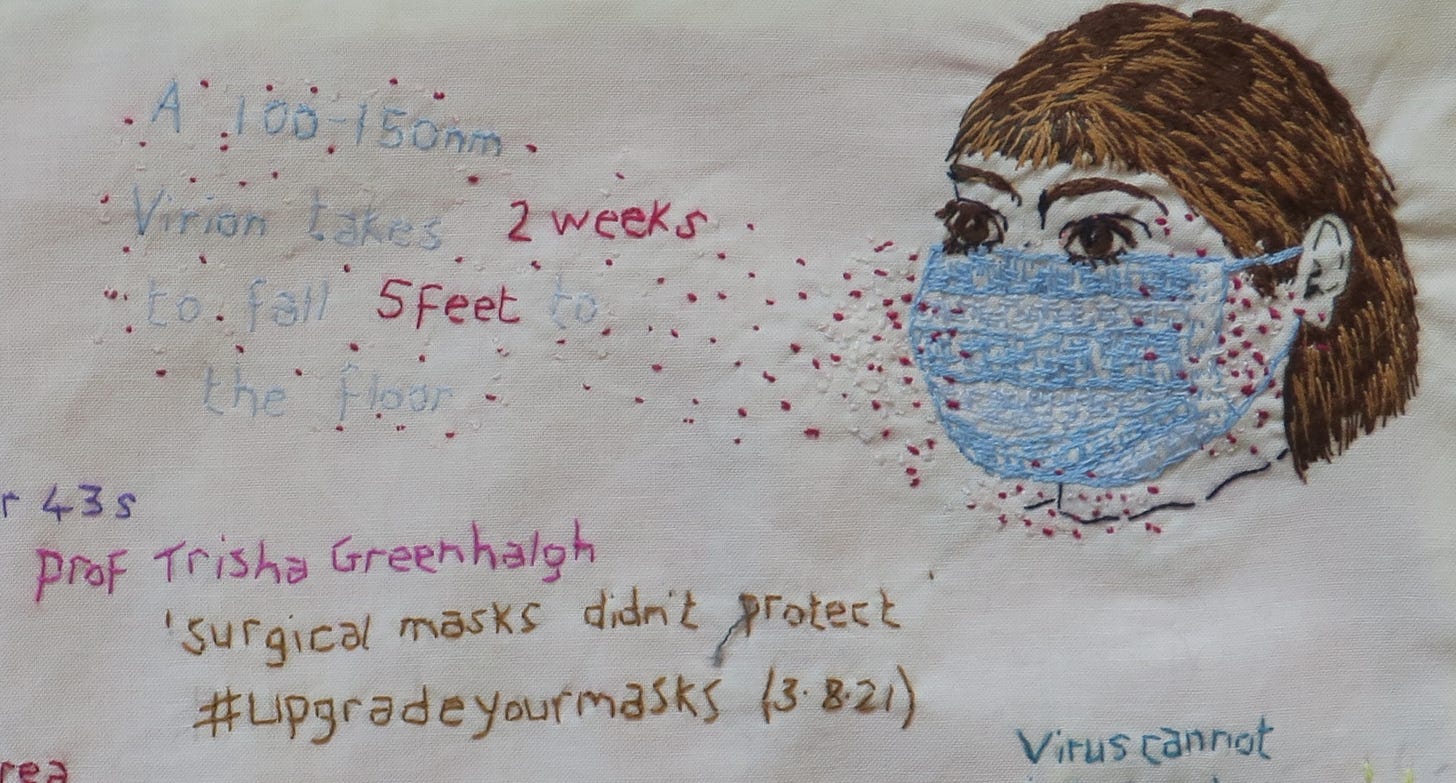 A 100-150nm
Virion takes 2 weeks
to fall 5 Feet to
the floor
r 43s
Prof Trisha Greenhalgh
'surgical masks didn't protect
#upgradeyourmasks (3.8.21)
Virus cannot
rea